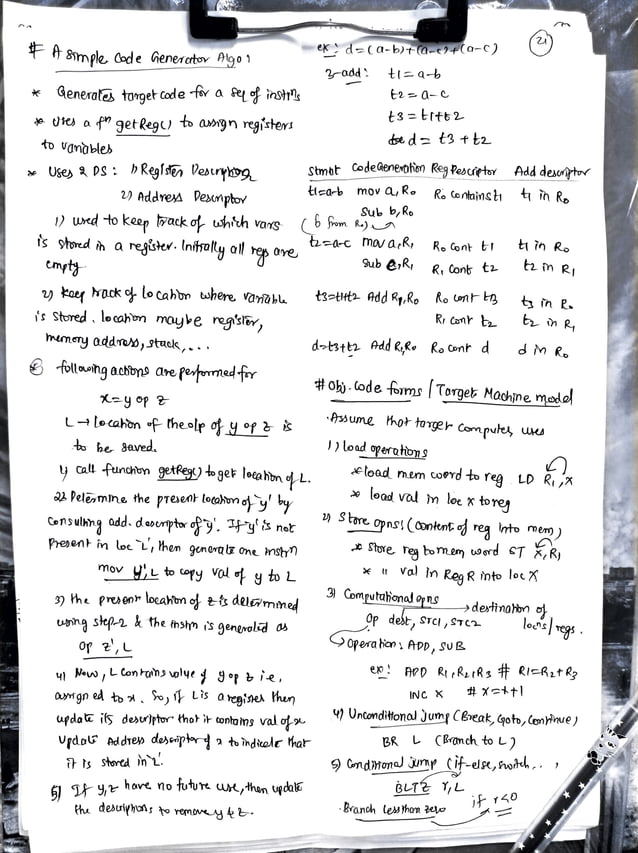 # A simple Code Generator Algo:
* Generates target code for a seq of instrns
* Uses a fn getReg() to assign registers
to variables
* Uses 2 DS: 1) Register Descriptor
2) Address Descriptor
1) used to keep track of which vars
is stored in a register. Initially all regs are
empty
2) keep track of location where variable
is stored. location maybe register,
memory address, stack,...
* following actions are performed for
x=y op z
L → location of the o/p of y op z is
to be saved.
1) call function getReg() to get location of L.
2) Determine the present location of 'y' by
consulting add. descriptor of 'y'. If 'y' is not
present in loc 'L', then generate one instrn
mov y', L to copy val of y to L
3) the present location of z is determined
using step-2 & the instrn is generated as
Op z', L
4) Now, L contains value of y op z i.e,
assigned to x. So, if L is a register then
update its descriptor that it contains val of x
Update Address descriptor of x to indicate that
it is stored in 'L'.
5) If y, z have no future use, then update
the descriptions to remove y & z.
21
ex: d=(a-b)+(a-c)+(a-c)
3-add: t1=a-b
t2=a-c
t3=t1+t2
d= t3+t2
Stmnt Code Generation Reg Descriptor Add descriptor
t1=a-b mov a, R0 R0 contains t1 t1 in R0
sub b, R0
(b from R0)
t2=a-c mov a, R1 R0 cont t1 t1 in R0
sub c, R1 R1 cont t2 t2 in R1
t3=t1+t2 Add R1, R0 R0 cont t3 t3 in R0
R1 cont t2 t2 in R1
d=t3+t2 Add R1, R0 R0 cont d d in R0
# Obj. Code forms / Target Machine model
. Assume that target computer uses
1) load operations
* load mem word to reg LD R1, X
* load val in loc x to reg
2) Store opns: (content of reg into mem)
* Store reg to mem word ST X, R1
* " val in Reg R into loc X
3) Computational opns
→ destination of
Op dest, src1, src2 locns/regs.
→ Operation: ADD, SUB
ex: ADD R1, R2, R3 # R1=R2+R3
INC X # x=x+1
4) Unconditional Jump (Break, Goto, Continue)
BR L (Branch to L)
5) Conditional jump (if-else, switch..)
BLTZ r, L
. Branch less than zero if r<0